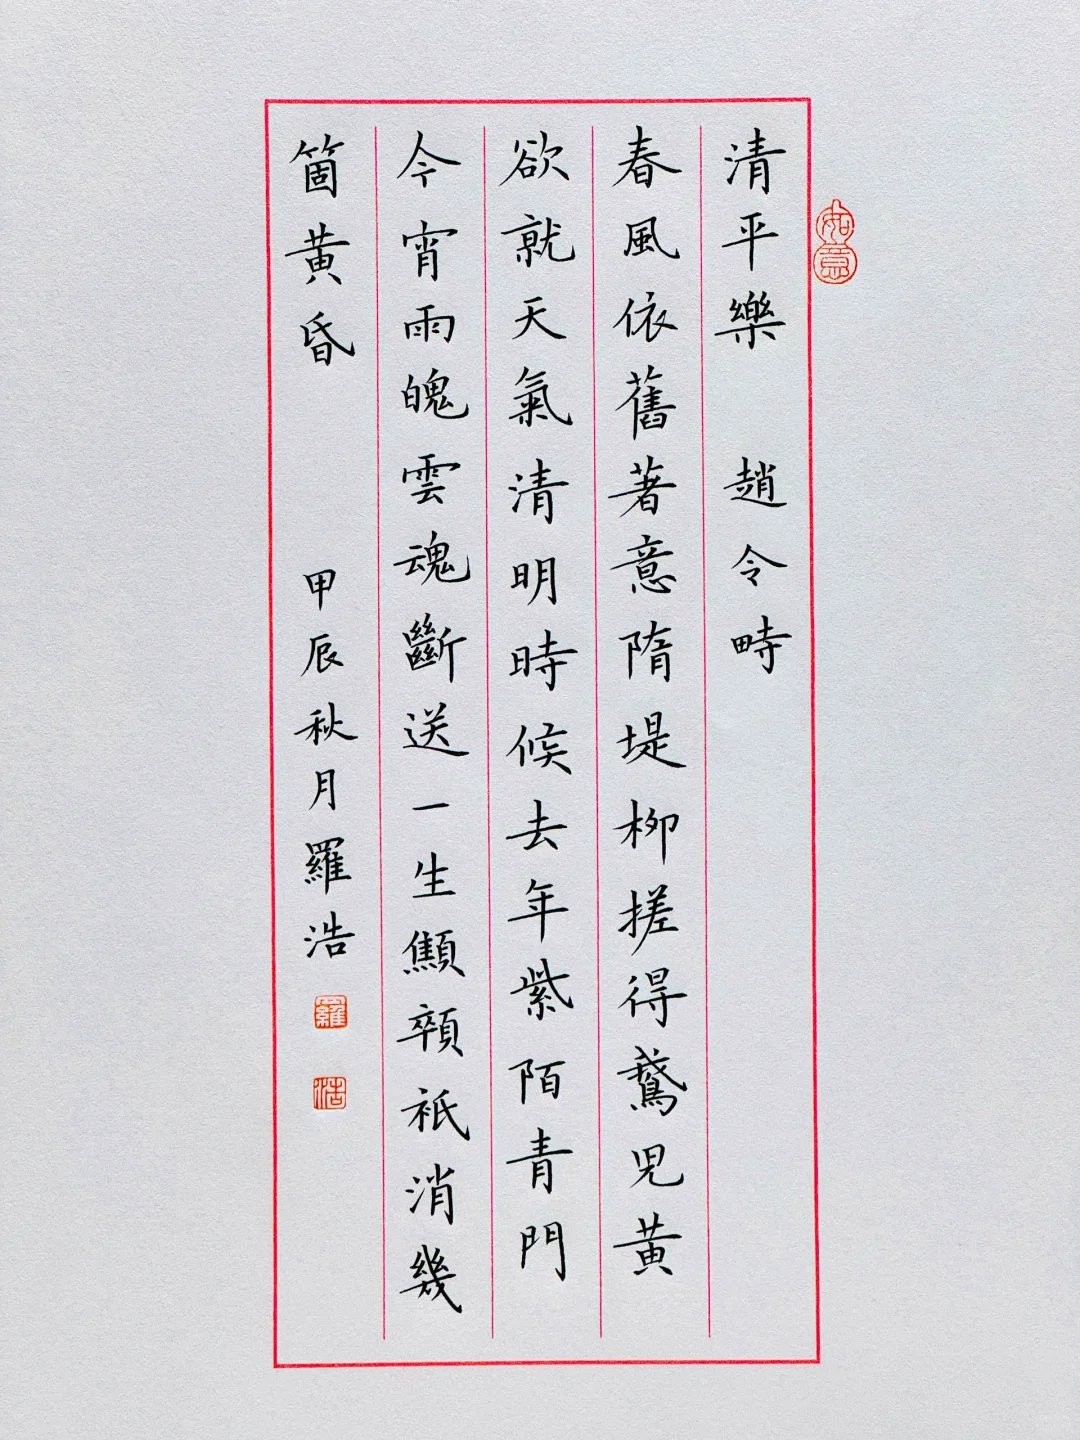 如意
清平樂 趙令畤
春風依舊著意隋堤柳搓得鵞児黃
欲就天氣清明時候去年紫陌青門
今宵雨魄雲魂斷送一生顦顇祇消幾
箇黃昏 甲辰秋月羅浩
羅
浩